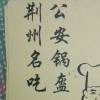 公安锅盔
荆州名吃